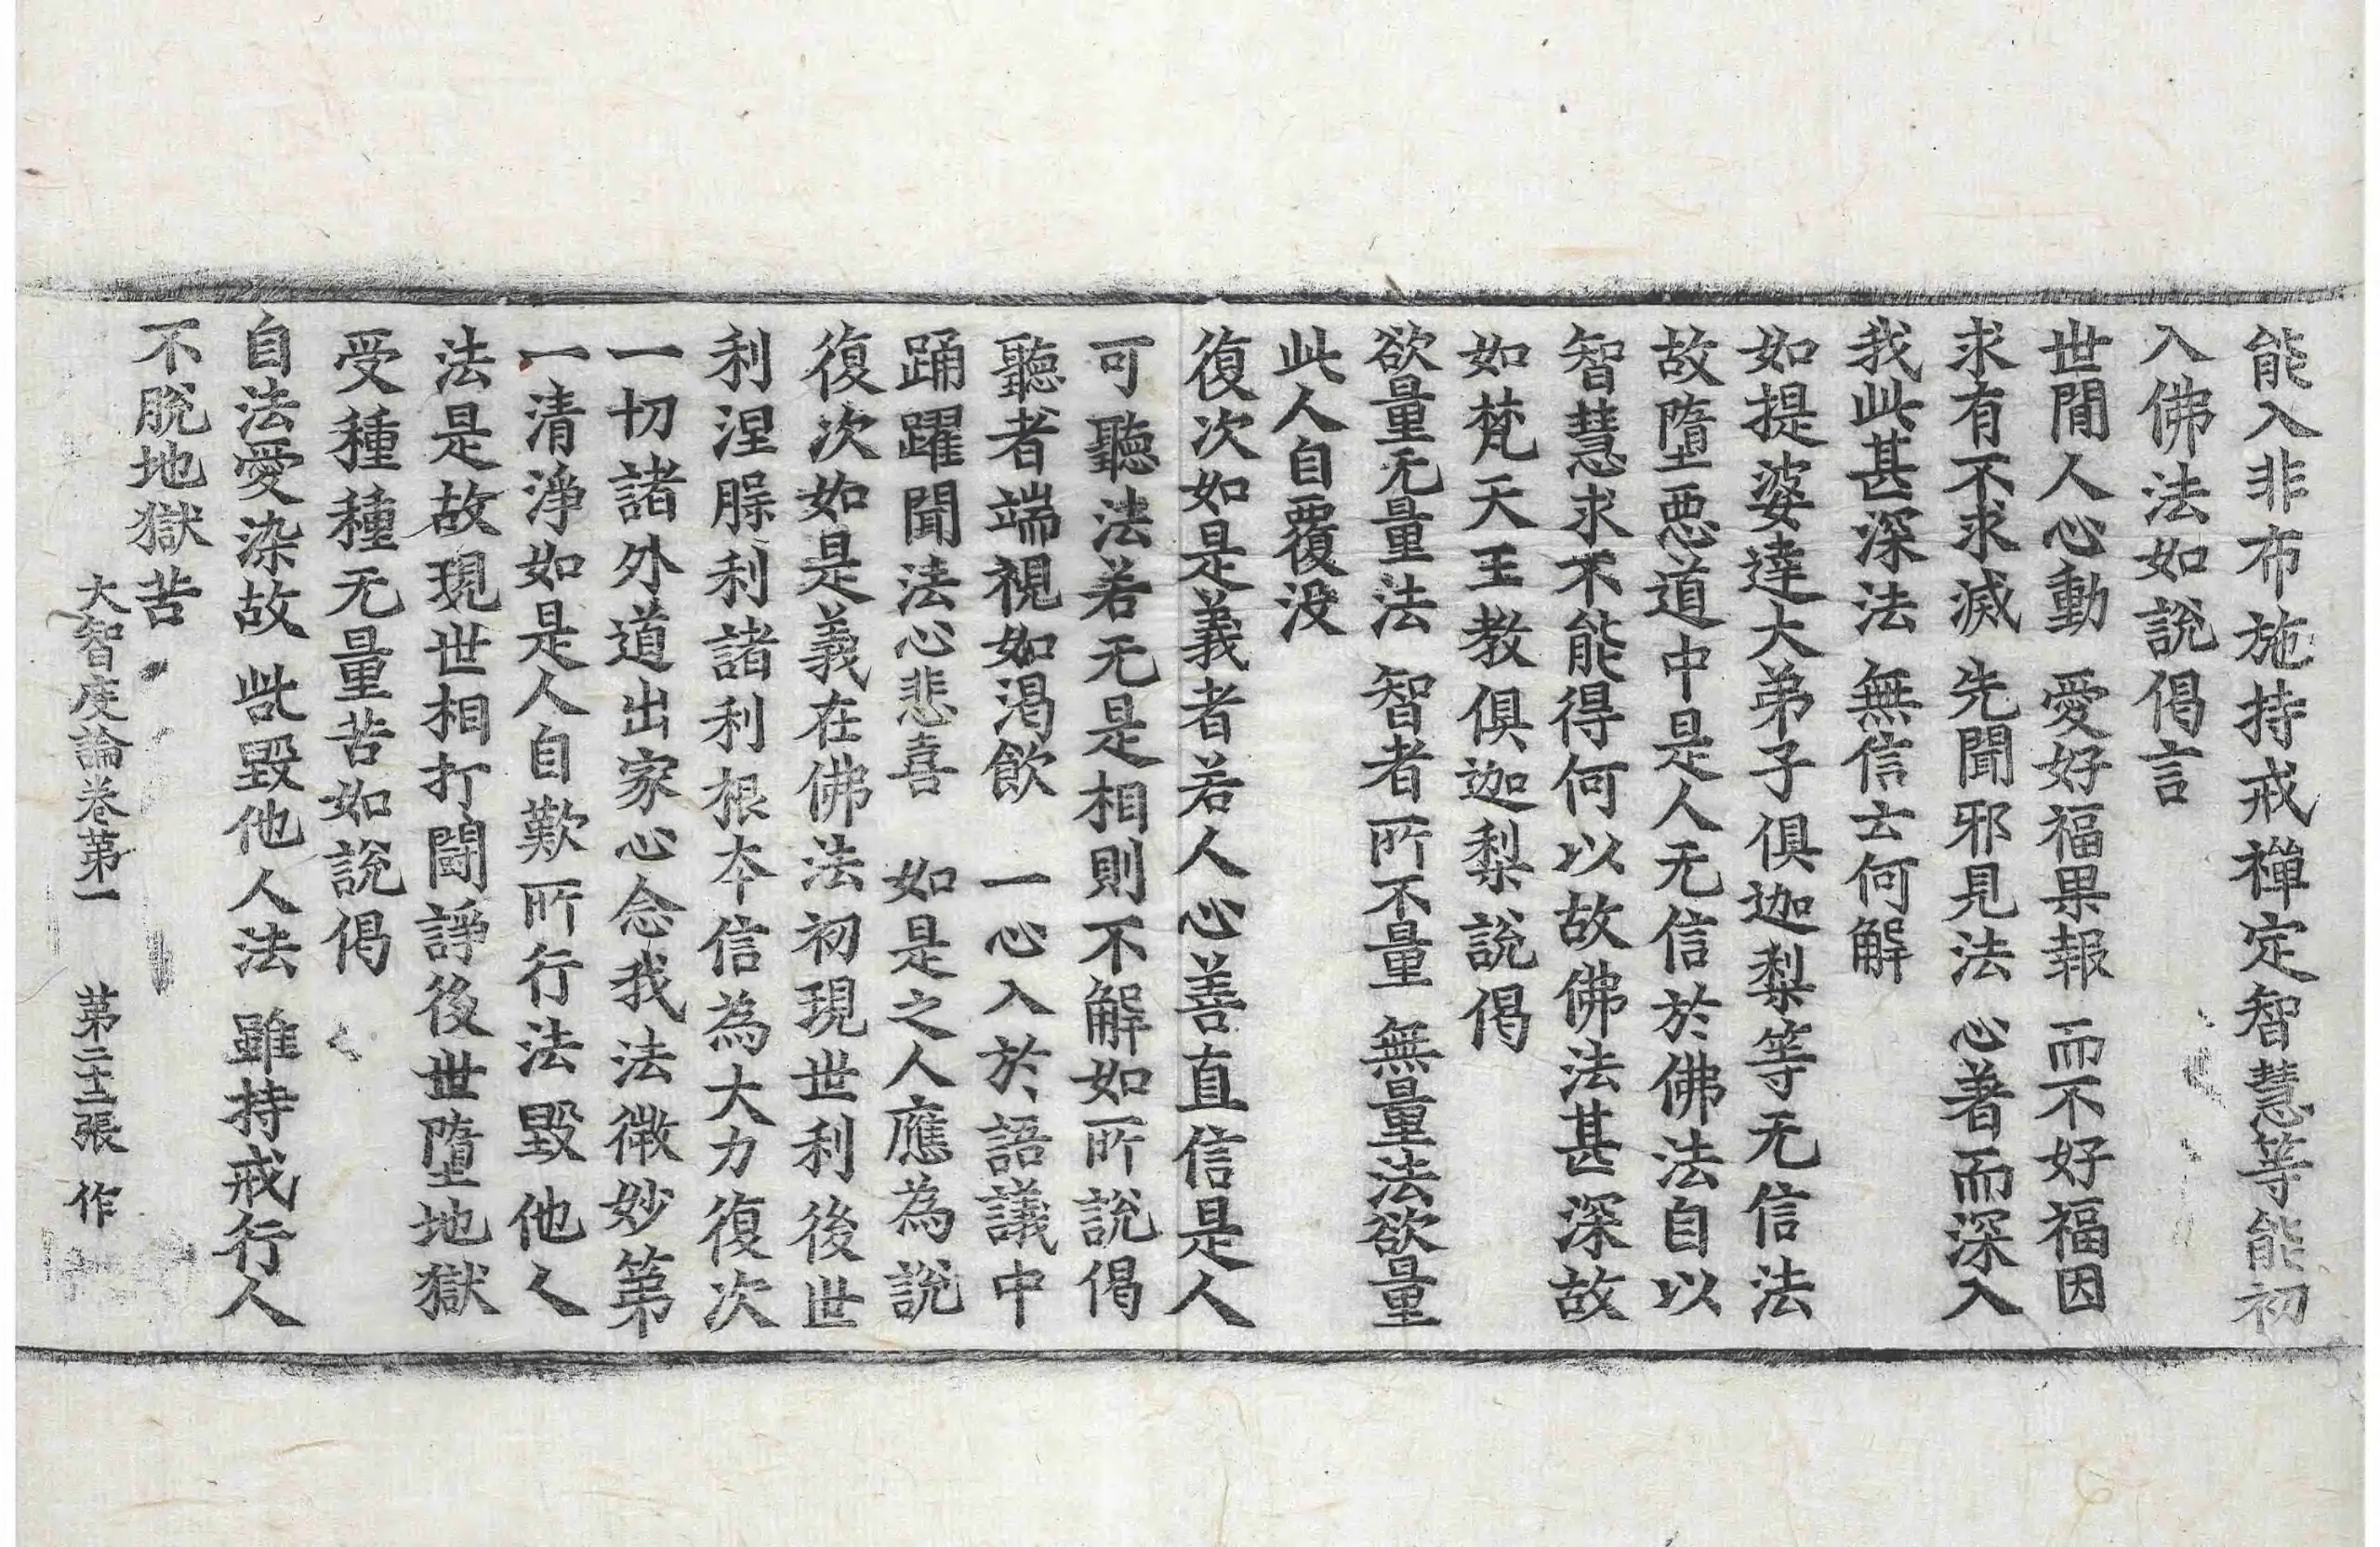 能入非布施持戒禪定智慧等能初
入佛法如說偈言
世閒人心動 愛好福果報 而不好福因
求有不求滅 先聞邪見法 心著而深入
我此甚深法 無信云何解
如提婆達大弟子俱迦梨等无信法
故墮悪道中是人无信於佛法自以
智慧求不能得何以故佛法甚深故
如梵天王教俱迦梨說偈
欲量无量法 智者所不量 無量法欲量
此人自覆没
復次如是義者若人心善直信是人
可聽法若无是相則不解如所說偈
聽者端視如渴飲 一心入於語議中
踊躍聞法心悲喜 如是之人應為說
復次如是義在佛法初現世利後世
利涅脭利諸利根夲信為大力復次
一切諸外道出家心念我法微妙第
一清淨如是人自歎所行法毀他人
法是故現世相打鬪諍後世墮地獄
受種種无量苦如說偈
自法愛染故 呰毀他人法 雖持戒行人
不脫地獄苦
大智度論卷苐一 苐二十二張 作